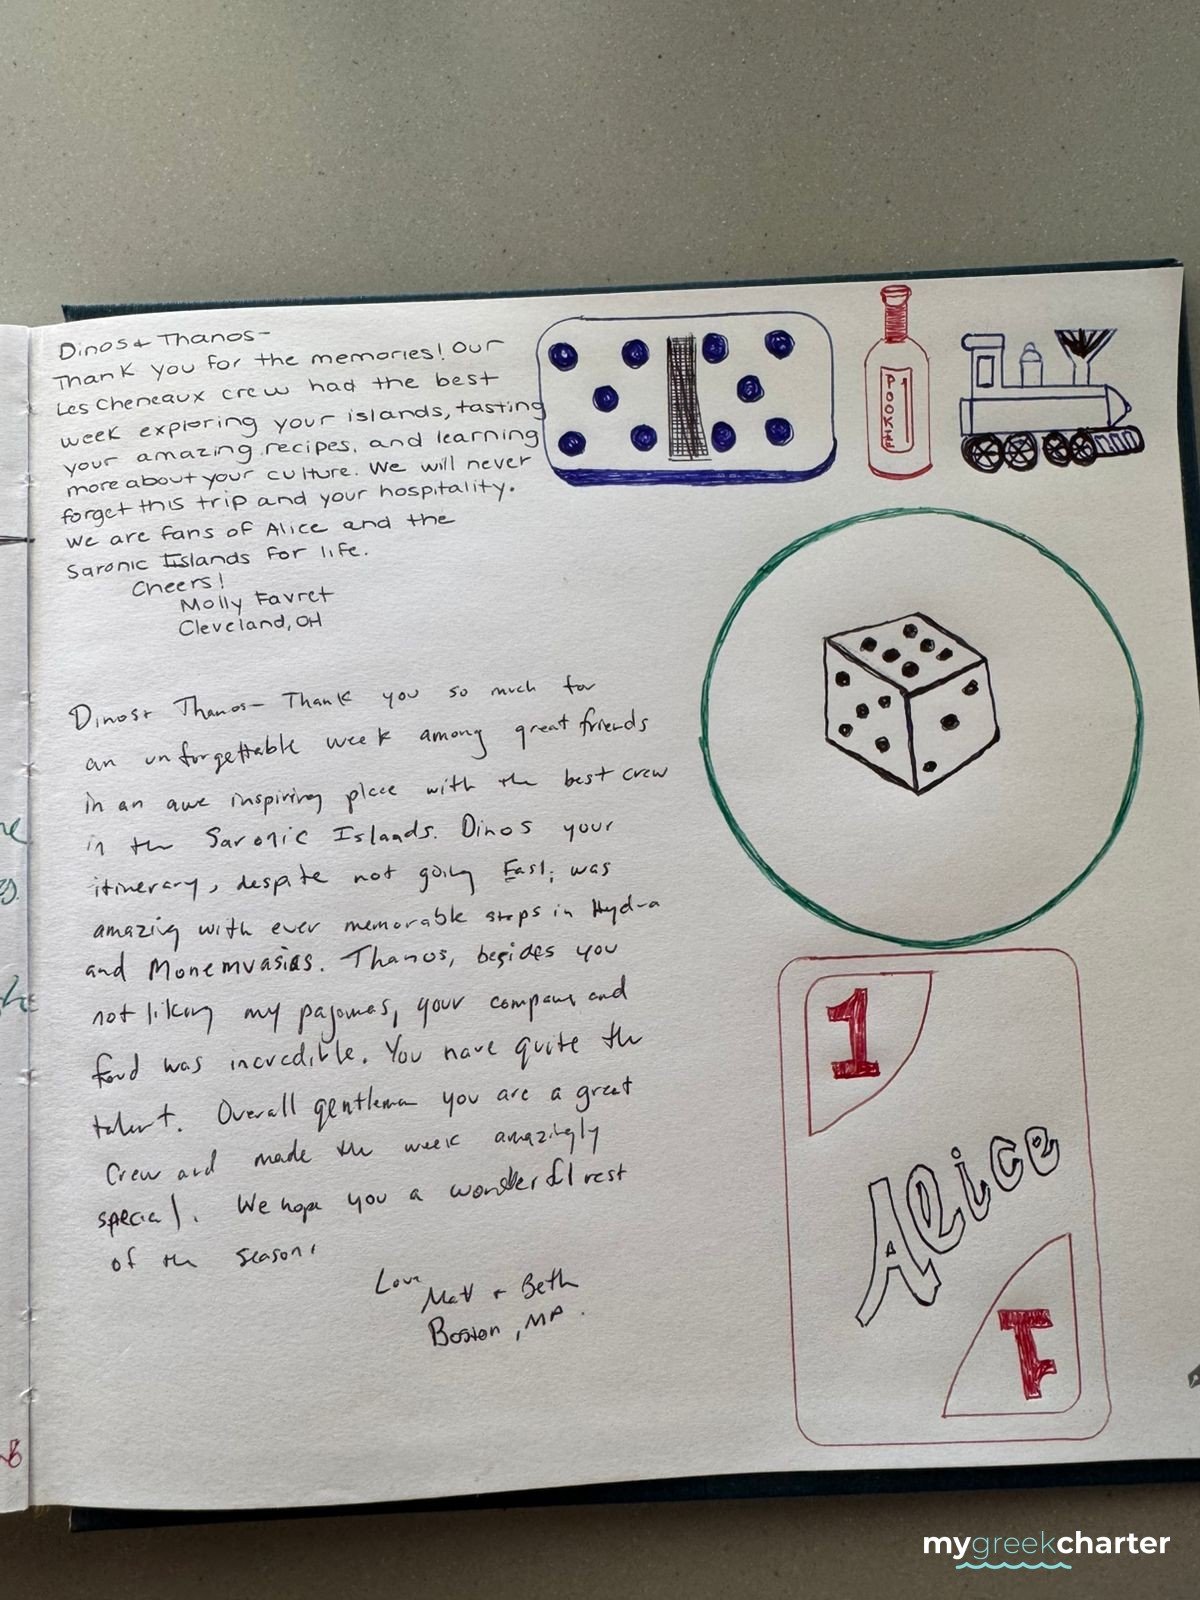 Dinos & Thanos-
Thank you for the memories! Our
Les Cheneaux crew had the best
week exploring your islands, tasting
your amazing recipes, and learning
more about your culture. We will never
forget this trip and your hospitality.
We are fans of Alice and the
Saronic Islands for life.
Cheers!
Molly Favret
Cleveland, OH
Dinos + Thanos- Thank you so much for
an unforgettable week among great friends
in an awe inspiring place with the best crew
in the Saronic Islands. Dinos your
itinerary, despite not going East, was
amazing with ever memorable stops in Hydra
and Monemvasias. Thanos, besides you
not liking my pajamas, your company and
food was incredible. You have quite the
talent. Overall gentleman you are a great
crew and made the week amazingly
special. We hope you a wonderful rest
of the season.
Love
Matt + Beth
Boston, MA.
POOKIE
1
Alice
1
mygreekcharter